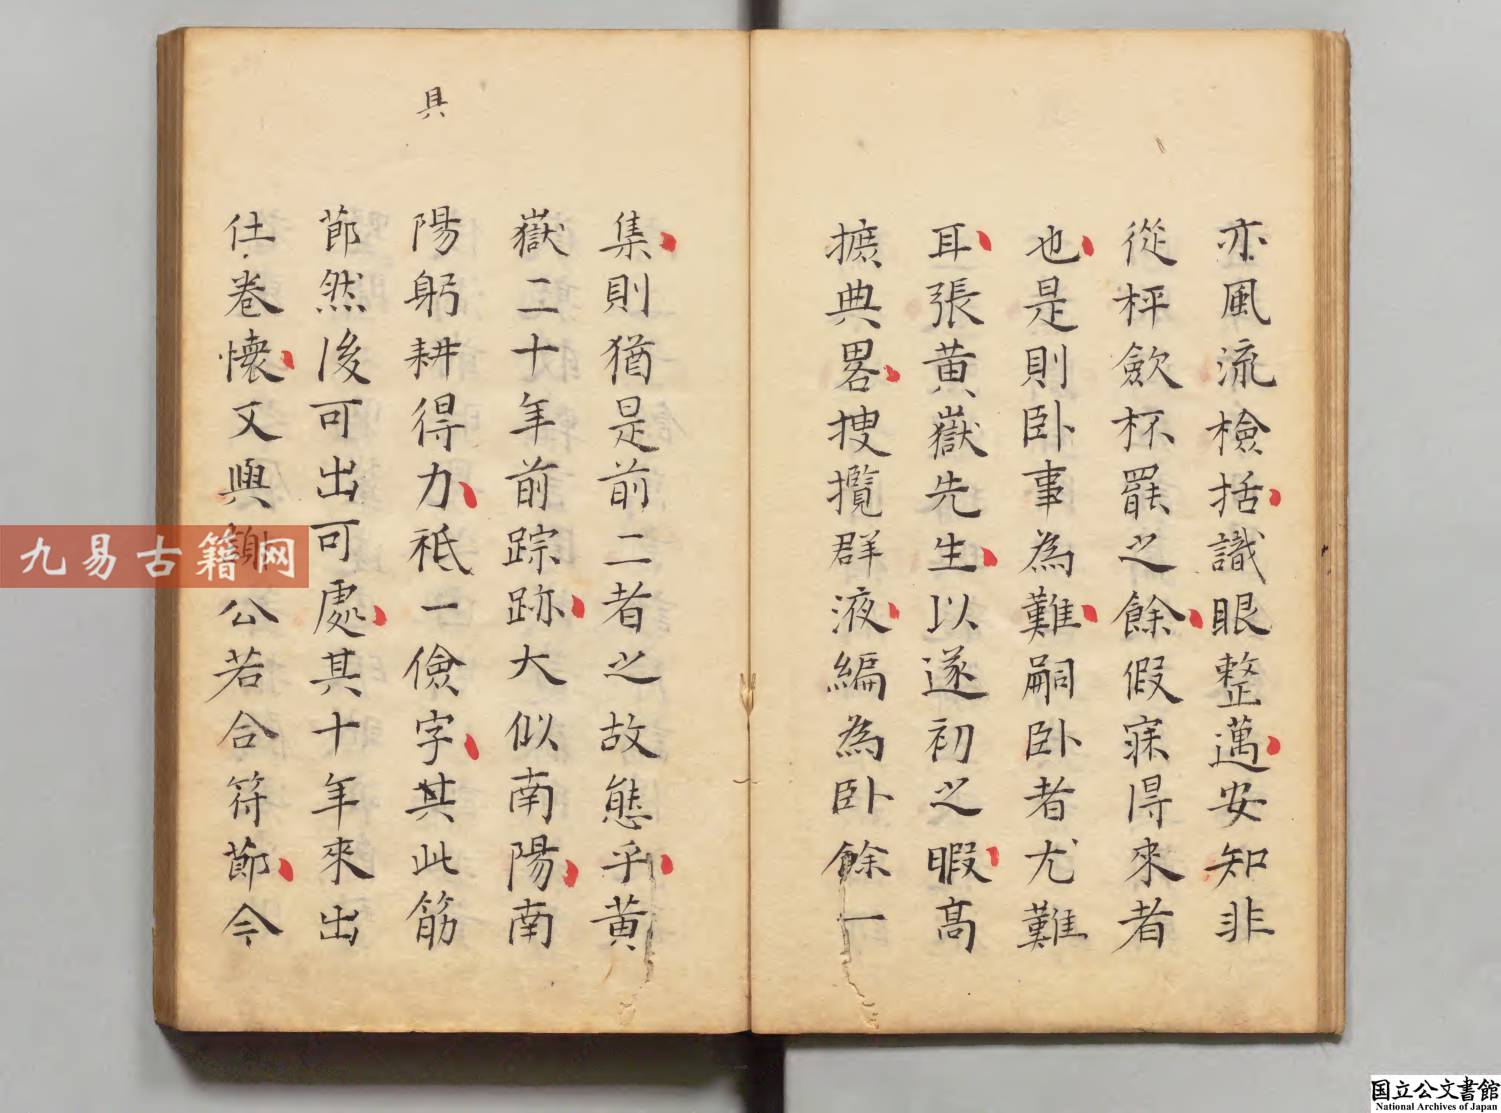 亦風流檢括識眼整邁安知非
從枰飲杯罷之餘假寐得來者
也是則卧事為難嗣卧者尤難
耳張黄嶽先生以遂初之暇高
摭典畧搜攬群液編為卧餘一
集則猶是前二者之故態乎黄
嶽二十年前踪跡大似南陽南
陽躬耕得力祇一儉字其此筋
節然後可出可處其十年來出
仕卷懷又與謝公若合符節今
具
九易古籍网
国立公文書館
National Archives of Japan